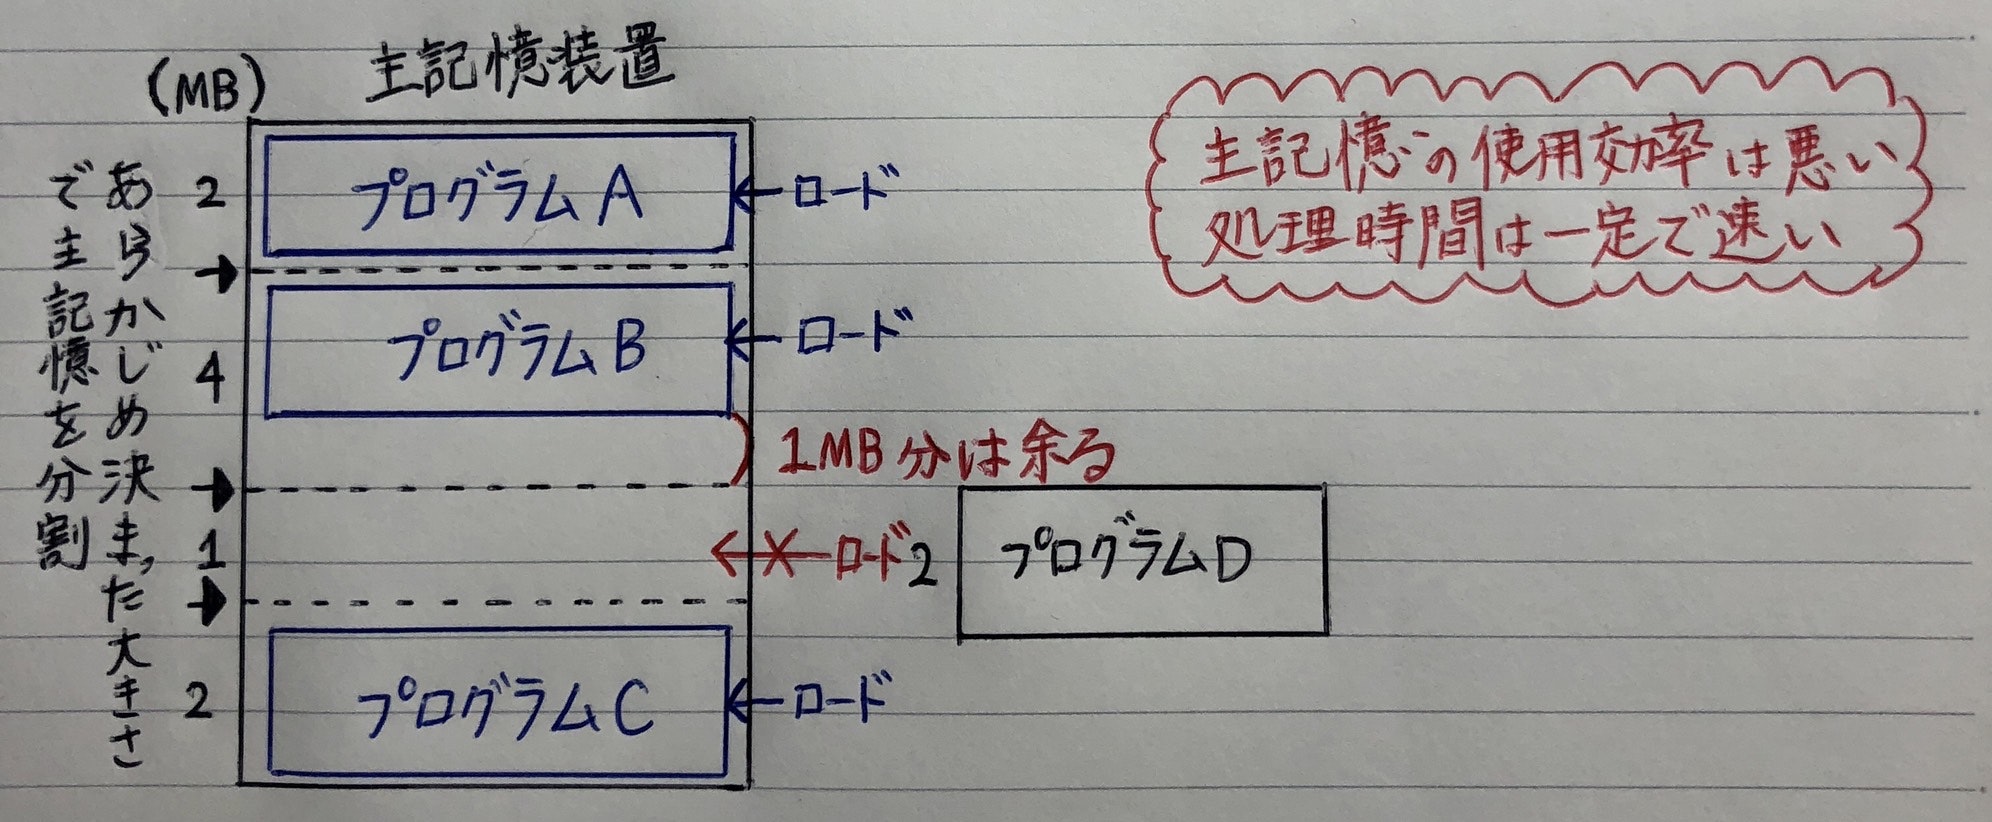 主記憶装置
(MB)
あらかじめ決まった大きさ
で主記憶を分割
2
プログラムA
ロード
4
プログラムB
ロード
1MB分は余る
1
ロード
2
プログラムD
2
プログラムC
ロード
主記憶の使用効率は悪い
処理時間は一定で速い